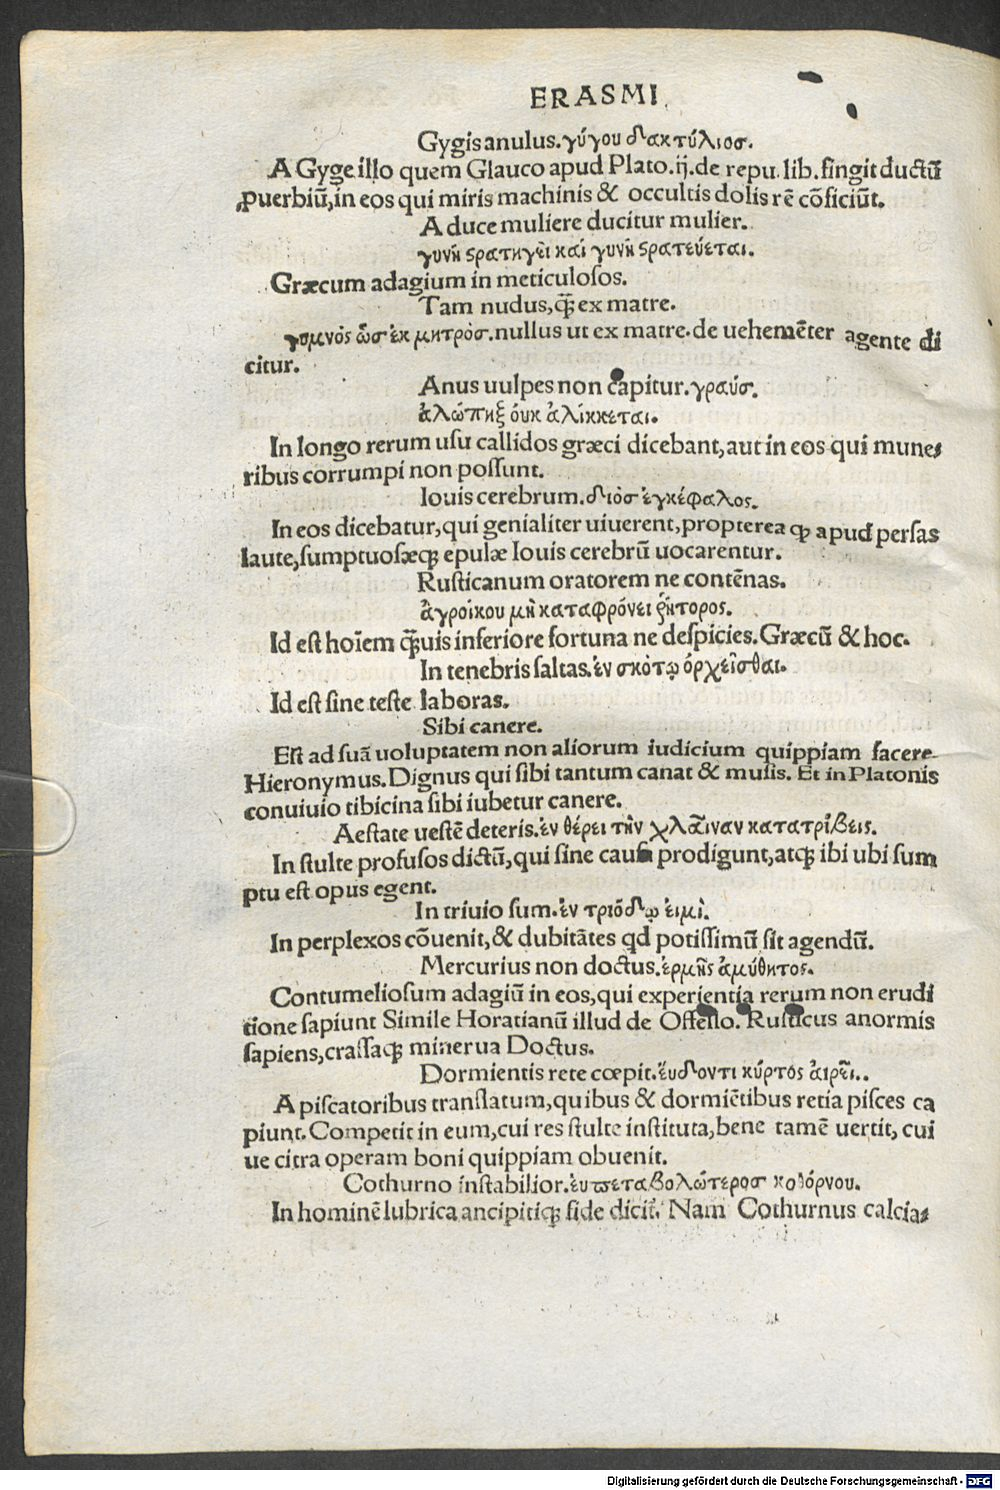 ERASMI
Gygis anulus. γύγου δακτύλιοσ.
A Gyge illo quem Glauco apud Plato. ij. de repu. lib. fingit ductū
ꝓuerbiū, in eos qui miris machinis & occultis dolis rē cōficiūt.
A duce muliere ducitur mulier.
γυνὴ ϛρατηγεῖ καί γυνὴ ϛρατεύεται.
Græcum adagium in meticulosos.
Tam nudus, q̄ ex matre.
γυμνὸς ὥσ ἐκ μητρὸσ. nullus ut ex matre. de uehemēter agente di
citur.
Anus uulpes non capitur. γραύσ.
ἀλώπηξ ὀυκ ἁλίκκεται.
In longo rerum usu callidos græci dicebant, aut in eos qui mune⸗
ribus corrumpi non possunt.
Iouis cerebrum. διὸσ ἐγκέφαλος.
In eos dicebatur, qui genialiter uiuerent, propterea ꝙ apud persas
laute, sumptuosæqꝫ epulæ Iouis cerebrū uocarentur.
Rusticanum oratorem ne contēnas.
ἀγροίκου μὴ καταφρόνει ῥήτορος.
Id est hoīem q̄uis inferiore fortuna ne despicies. Græcū & hoc.
In tenebris saltas. ἐν σκότῳ ὀρχεῖσθαι.
Id est sine teste laboras.
Sibi canere.
Est ad suā uoluptatem non aliorum iudicium quippiam facere
Hieronymus. Dignus qui sibi tantum canat & musis. Et in Platonis
conuiuio tibicina sibi iubetur canere.
Aestate uestē deteris. ἐν θέρει τὴν χλαῖναν κατατρίβεις.
In stulte profusos dictū, qui sine causa prodigunt, atqꝫ ibi ubi sum
ptu est opus egent.
In triuio sum. ἐν τριόδῳ ἐιμὶ.
In perplexos cōuenit, & dubitātes qd potissimū sit agendū.
Mercurius non doctus. ἑρμῆς ἀμύθητος.
Contumeliosum adagiū in eos, qui experientia rerum non erudi
tione sapiunt Simile Horatianū illud de Offello. Rusticus anormis
sapiens, crassaqꝫ minerua Doctus.
Dormientis rete cœpit. ἕυδοντι κύρτος ἁιρεῖ..
A piscatoribus translatum, quibus & dormiētibus retia pisces ca
piunt. Competit in eum, cui res stulte instituta, bene tamē uertit, cui
ue citra operam boni quippiam obuenit.
Cothurno instabilior. ἐυμεταβολώτεροσ κοθόρνου.
In hominē lubrica ancipitiqꝫ fide dicit̄. Nam Cothurnus calcia⸗
Digitalisierung gefördert durch die Deutsche Forschungsgemeinschaft - DFG